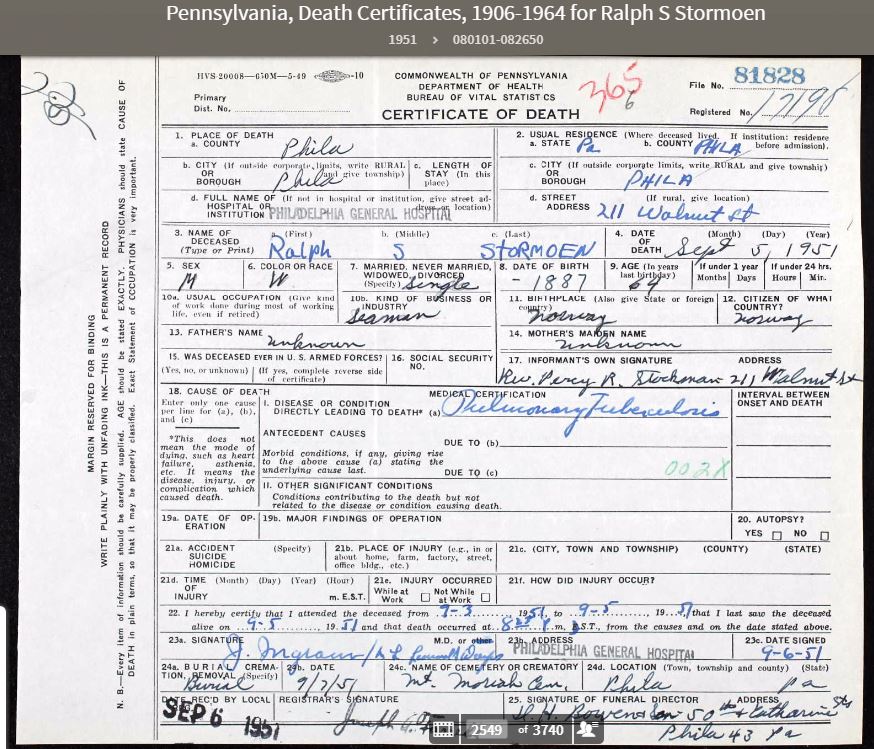 Pennsylvania, Death Certificates, 1906-1964 for Ralph S Stormoen
1951 › 080101-082650
HVS 20008—650M—5-49 -10
COMMONWEALTH OF PENNSYLVANIA
DEPARTMENT OF HEALTH
BUREAU OF VITAL STATISTICS
CERTIFICATE OF DEATH
365
6
File No. 81828
Primary
Dist. No.
Registered No.
MARGIN RESERVED FOR BINDING
WRITE PLAINLY WITH UNFADING INK—THIS IS A PERMANENT RECORD
N. B.—Every item of information should be carefully supplied. AGE should be stated EXACTLY. PHYSICIANS should state CAUSE OF
DEATH in plain terms, so that it may be properly classified. Exact Statement of OCCUPATION is very important.
1. PLACE OF DEATH
a. COUNTY Phila
2. USUAL RESIDENCE (Where deceased lived. If institution: residence before admission).
a. STATE Pa b. COUNTY PHILA
b. CITY (If outside corporate limits, write RURAL and give township)
OR BOROUGH Phila
c. LENGTH OF STAY (In this place)
c. CITY (If outside corporate limits, write RURAL and give township)
OR BOROUGH PHILA
d. FULL NAME OF (If not in hospital or institution, give street address or location)
HOSPITAL OR INSTITUTION PHILADELPHIA GENERAL HOSPITAL
d. STREET ADDRESS (If rural, give location)
211 Walnut St
3. NAME OF DECEASED (Type or Print)
a. (First) b. (Middle) c. (Last)
Ralph S STORMOEN
4. DATE OF DEATH (Month) (Day) (Year)
Sept 5, 1951
5. SEX
M
6. COLOR OR RACE
W
7. MARRIED, NEVER MARRIED, WIDOWED, DIVORCED (Specify) Single
8. DATE OF BIRTH
- 1887
9. AGE (In years last birthday)
64
If under 1 year Months Days
If under 24 hrs. Hours Min.
10a. USUAL OCCUPATION (Give kind of work done during most of working life, even if retired)
10b. KIND OF BUSINESS OR INDUSTRY
Seaman
11. BIRTHPLACE (Also give State or foreign country)
Norway
12. CITIZEN OF WHAT COUNTRY?
Norway
13. FATHER'S NAME
unknown
14. MOTHER'S MAIDEN NAME
unknown
15. WAS DECEASED EVER IN U. S. ARMED FORCES?
(Yes, no, or unknown) (If yes, complete reverse side of certificate)
16. SOCIAL SECURITY NO.
17. INFORMANT'S OWN SIGNATURE ADDRESS
Rev. Percy R. Stockman 211 Walnut St
18. CAUSE OF DEATH
Enter only one cause per line for (a), (b), and (c)
*This does not mean the mode of dying, such as heart failure, asthenia, etc. It means the disease, injury, or complication which caused death.
MEDICAL CERTIFICATION
I. DISEASE OR CONDITION DIRECTLY LEADING TO DEATH* (a) Pulmonary Tuberculosis
INTERVAL BETWEEN ONSET AND DEATH
ANTECEDENT CAUSES
DUE TO (b)
Morbid conditions, if any, giving rise to the above cause (a) stating the underlying cause last.
DUE TO (c)
002X
II. OTHER SIGNIFICANT CONDITIONS
Conditions contributing to the death but not related to the disease or condition causing death.
19a. DATE OF OPERATION
19b. MAJOR FINDINGS OF OPERATION
20. AUTOPSY?
YES NO
21a. ACCIDENT SUICIDE HOMICIDE (Specify)
21b. PLACE OF INJURY (e.g., in or about home, farm, factory, street, office bldg., etc.)
21c. (CITY, TOWN AND TOWNSHIP) (COUNTY) (STATE)
21d. TIME OF INJURY (Month) (Day) (Year) (Hour) m. E.S.T.
21e. INJURY OCCURRED
While at Work Not While at Work
21f. HOW DID INJURY OCCUR?
22. I hereby certify that I attended the deceased from 9-3, 1951, to 9-5, 1951 that I last saw the deceased
alive on 9-5, 1951 and that death occurred at m. E.S.T., from the causes and on the date stated above.
23a. SIGNATURE M.D. or other
J. Ingram
23b. ADDRESS
PHILADELPHIA GENERAL HOSPITAL
23c. DATE SIGNED
9-6-51
24a. BURIAL, CREMATION, REMOVAL (Specify)
Burial
24b. DATE
9/7/51
24c. NAME OF CEMETERY OR CREMATORY
Mt. Moriah Cem.
24d. LOCATION (Town, township and county) (State)
Phila Pa
DATE REC'D BY LOCAL REG.
SEP 6 1951
REGISTRAR'S SIGNATURE
Joseph
25. SIGNATURE OF FUNERAL DIRECTOR ADDRESS
50th & Catharine Sts
Phila 43 Pa
2549 of 3740